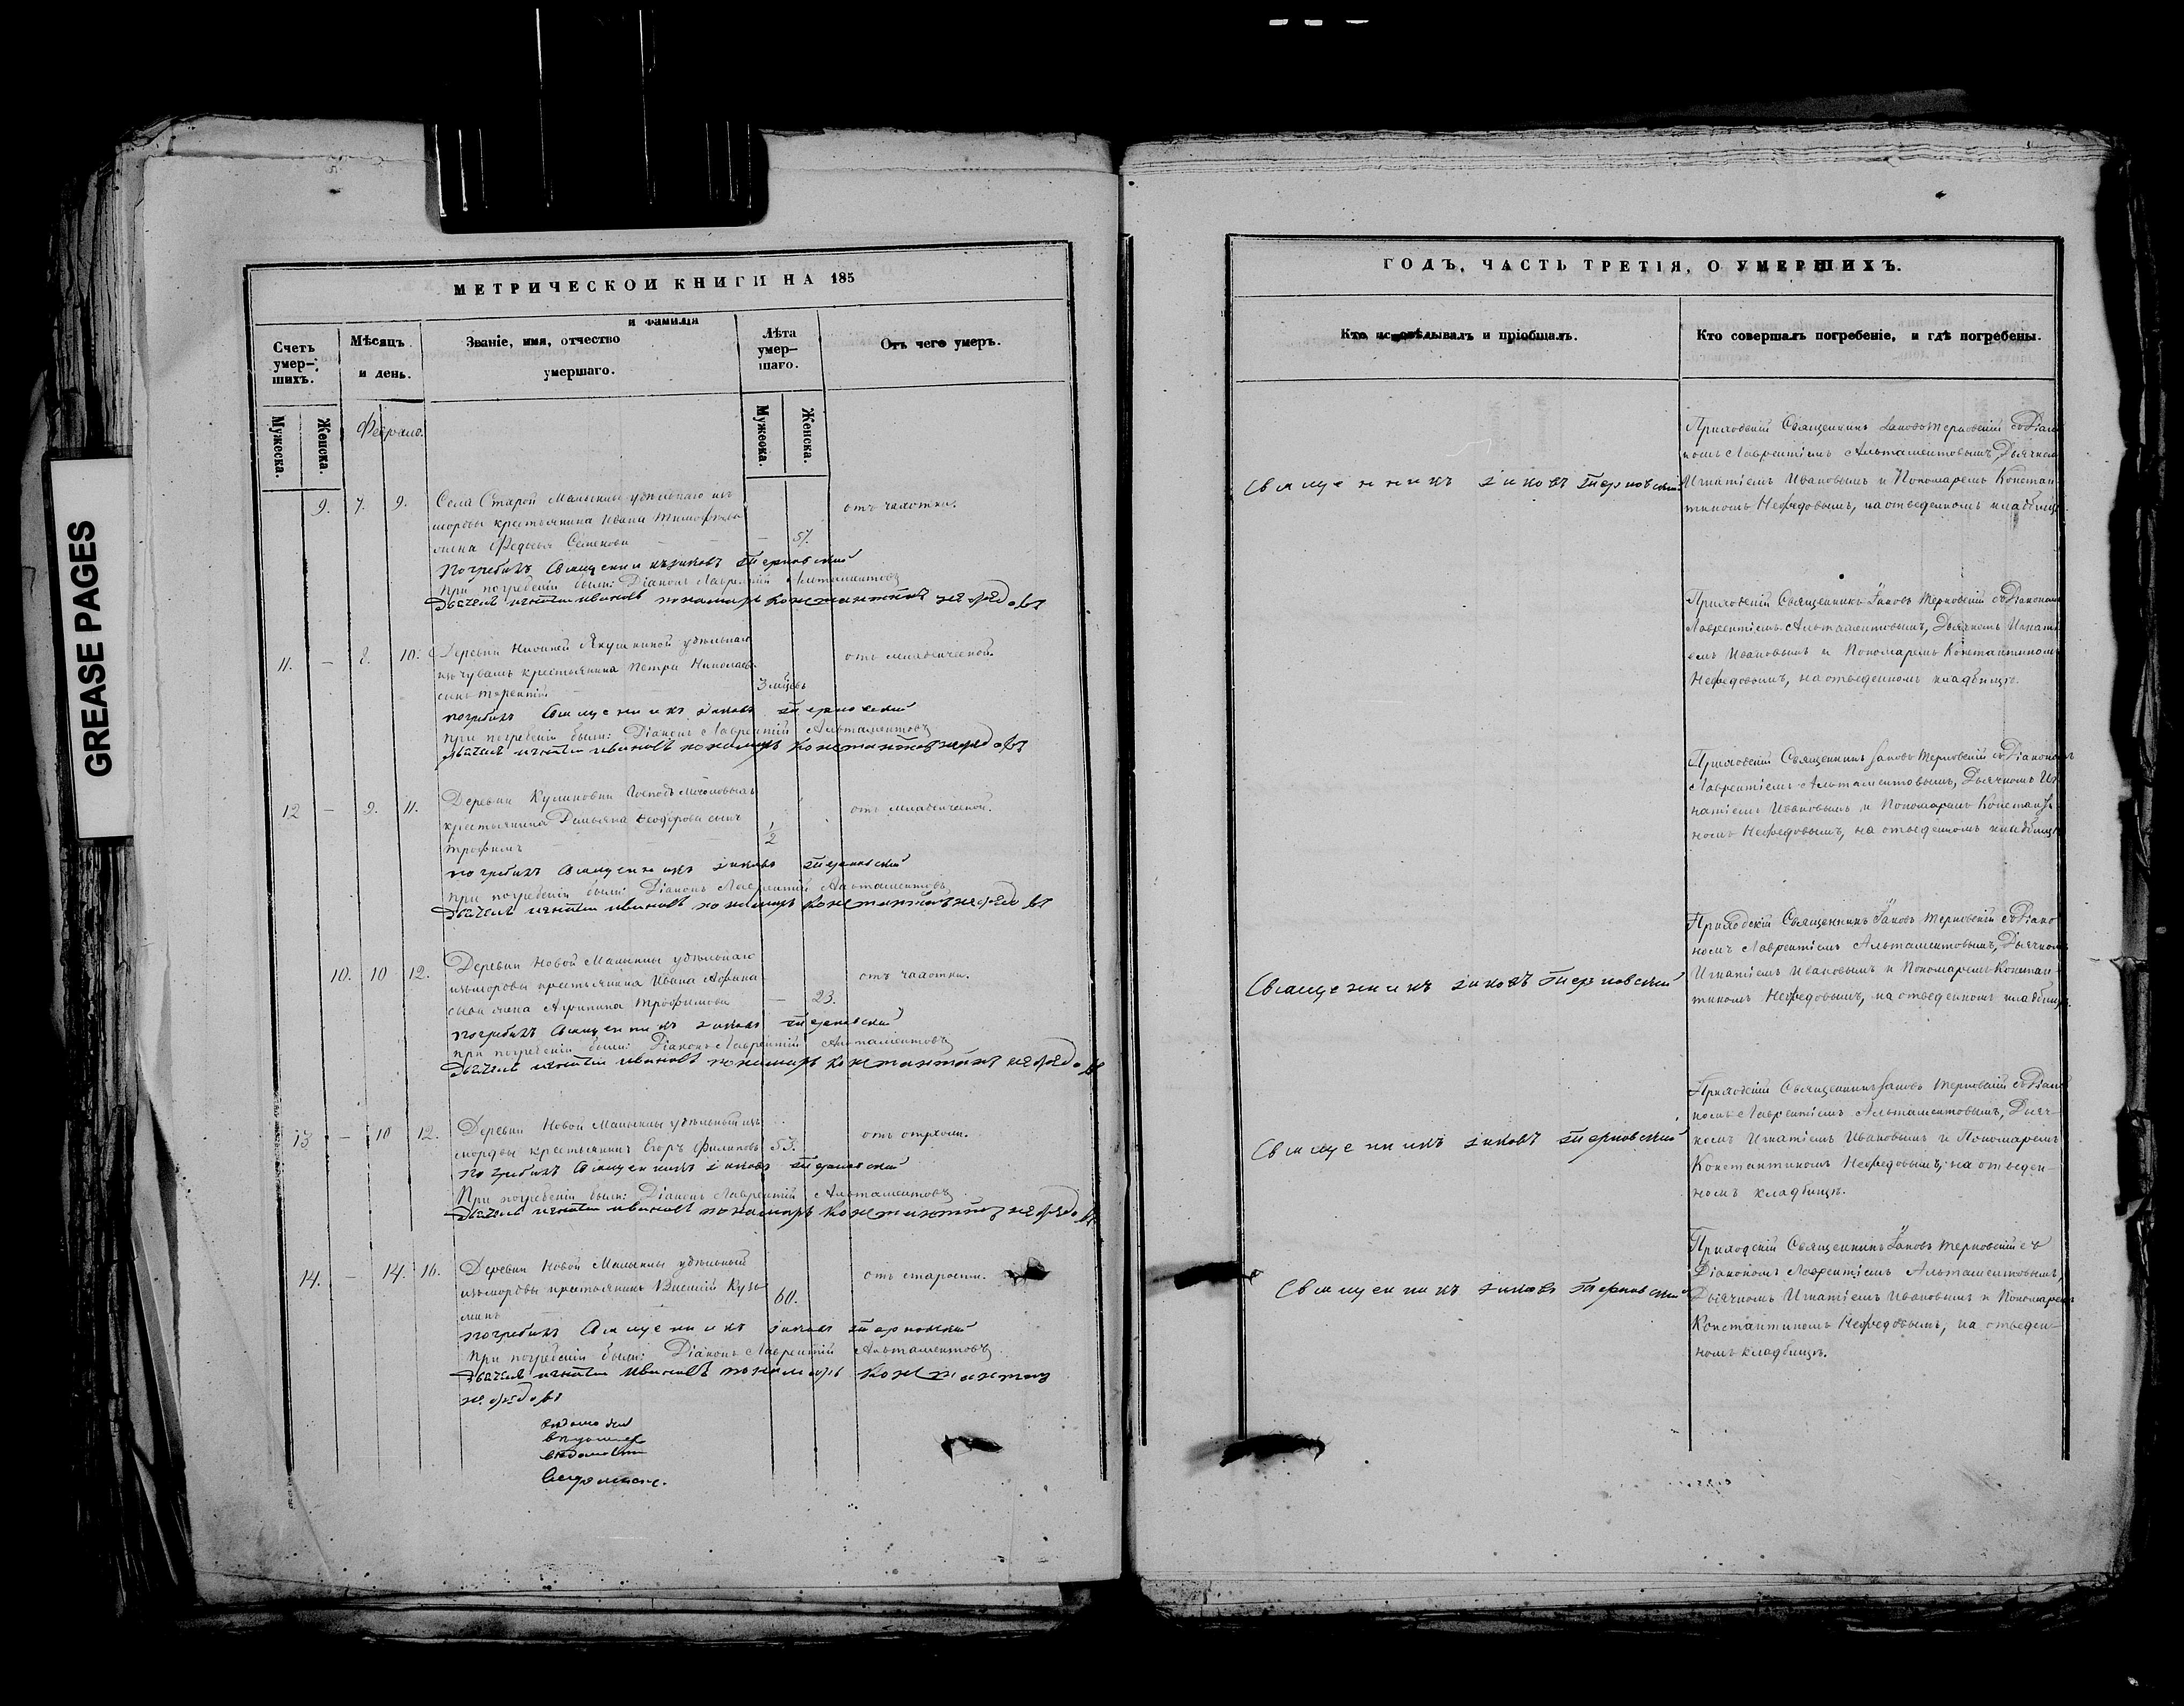 GREASE PAGES
МЕТРИЧЕСКОЙ КНИГИ НА 185
Счетъ умер-шихъ.
Мѣсяцъ и день.
Званіе, имя, отчество и фамилія умершаго.
Лѣта умер-шаго.
Отъ чего умеръ.
Мужеска.
Женска.
Мужеска.
Женска.
9. 7. 9. Села Старой Маклы удѣльнаго изъ
мордвы крестьянина Ивана Тимофѣева
жена Федосья Семенова 57. отъ чахотки.
Погребалъ Священникъ Іаковъ Терновский
При погребеніи были: Діаконъ Лаврентій Альтаментовъ
Дьячекъ Игнатій Ивановъ пономарь Константинъ Нефедовъ
11. — 8. 10. Деревни Нижней Якушкиной удѣльнаго
изъ чувашъ крестьянина Петра Николаева
сынъ Терентій 3 мѣсвъ отъ младенческой.
погребалъ Священникъ Іаковъ Терновский
При погребеніи были: Діаконъ Лаврентій Альтаментовъ
Дьячекъ Игнатій Ивановъ пономарь Константинъ Нефедовъ
12 — 9. 11. Деревни Кулиновки Господъ
крестьянина Демьяна Ѳеодорова сынъ
Трофимъ 1/2 отъ младенческой.
погребалъ Священникъ Іаковъ Терновский
При погребеніи были: Діаконъ Лаврентій Альтаментовъ
Дьячекъ Игнатій Ивановъ пономарь Константинъ Нефедовъ
10. 10 12. Деревни Новой удѣльнаго
изъ мордвы крестьянина Ивана Афана-
сьева жена Трофимова — 23. отъ чахотки.
погребалъ Священникъ Іаковъ Терновский
При погребеніи были: Діаконъ Лаврентій Альтаментовъ
Дьячекъ Игнатій Ивановъ пономарь Константинъ Нефедовъ
13 — 10 12. Деревни Новой удѣльный изъ
мордвы крестьянинъ Егоръ Филиповъ 53.
погребалъ Священникъ Іаковъ Терновский
При погребеніи были: Діаконъ Лаврентій Альтаментовъ
Дьячекъ Игнатій Ивановъ пономарь Константинъ Нефедовъ
14. — 14. 16. Деревни Новой удѣльный
изъ мордвы крестьянинъ Кузь-
минъ 60. отъ старости.
погребалъ Священникъ Іаковъ Терновский
При погребеніи были: Діаконъ Лаврентій Альтаментовъ
Дьячекъ Игнатій Ивановъ пономарь Константинъ
Нефедовъ
ГОДЪ, ЧАСТЬ ТРЕТІЯ, О УМЕРШИХЪ.
Кто исповѣдывалъ и пріобщалъ.
Кто совершалъ погребеніе, и гдѣ погребены.
Священникъ Іаковъ Терновский
Приходскій Священникъ Іаковъ Терновскій съ Діако
номъ Лаврентіемъ Альтаментовымъ, Дьячкомъ
Игнатіемъ Ивановымъ и Пономаремъ Констан
тиномъ Нефедовымъ, на отведенномъ кладбищѣ.
Приходскій Священникъ Іаковъ Терновскій съ Діакономъ
Лаврентіемъ Альтаментовымъ, Дьячкомъ Игнаті
емъ Ивановымъ и Пономаремъ Константиномъ
Нефедовымъ, на отведенномъ кладбищѣ.
Приходскій Священникъ Іаковъ Терновскій съ Діакономъ
Лаврентіемъ Альтаментовымъ, Дьячкомъ Иг
натіемъ Ивановымъ и Пономаремъ Константи
номъ Нефедовымъ, на отведенномъ кладбищѣ
Священникъ Іаковъ Терновский
Приходскій Священникъ Іаковъ Терновскій съ Діако
номъ Лаврентіемъ Альтаментовымъ, Дьячкомъ
Игнатіемъ Ивановымъ и Пономаремъ Констан
тиномъ Нефедовымъ, на отведенномъ кладбищѣ.
Священникъ Іаковъ Терновский
Приходскій Священникъ Іаковъ Терновскій съ Діако
номъ Лаврентіемъ Альтаментовымъ, Дьяч-
комъ Игнатіемъ Ивановымъ и Пономаремъ
Константиномъ Нефедовымъ, на отведен-
номъ кладбищѣ.
Священникъ Іаковъ Терновский
Приходскій Священникъ Іаковъ Терновскій съ
Діакономъ Лаврентіемъ Альтаментовымъ,
Дьячкомъ Игнатіемъ Ивановымъ и Пономаремъ
Константиномъ Нефедовымъ, на отведен-
номъ кладбищѣ.